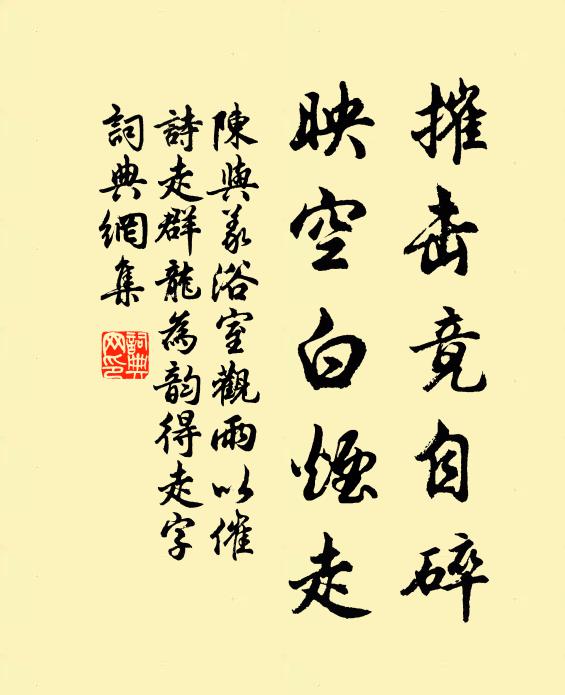 摧击竟自碎
映空白煙走
陳與義浴室觀雨以催
詩走群龍為韵得走字
詞典網集
詞典
网印